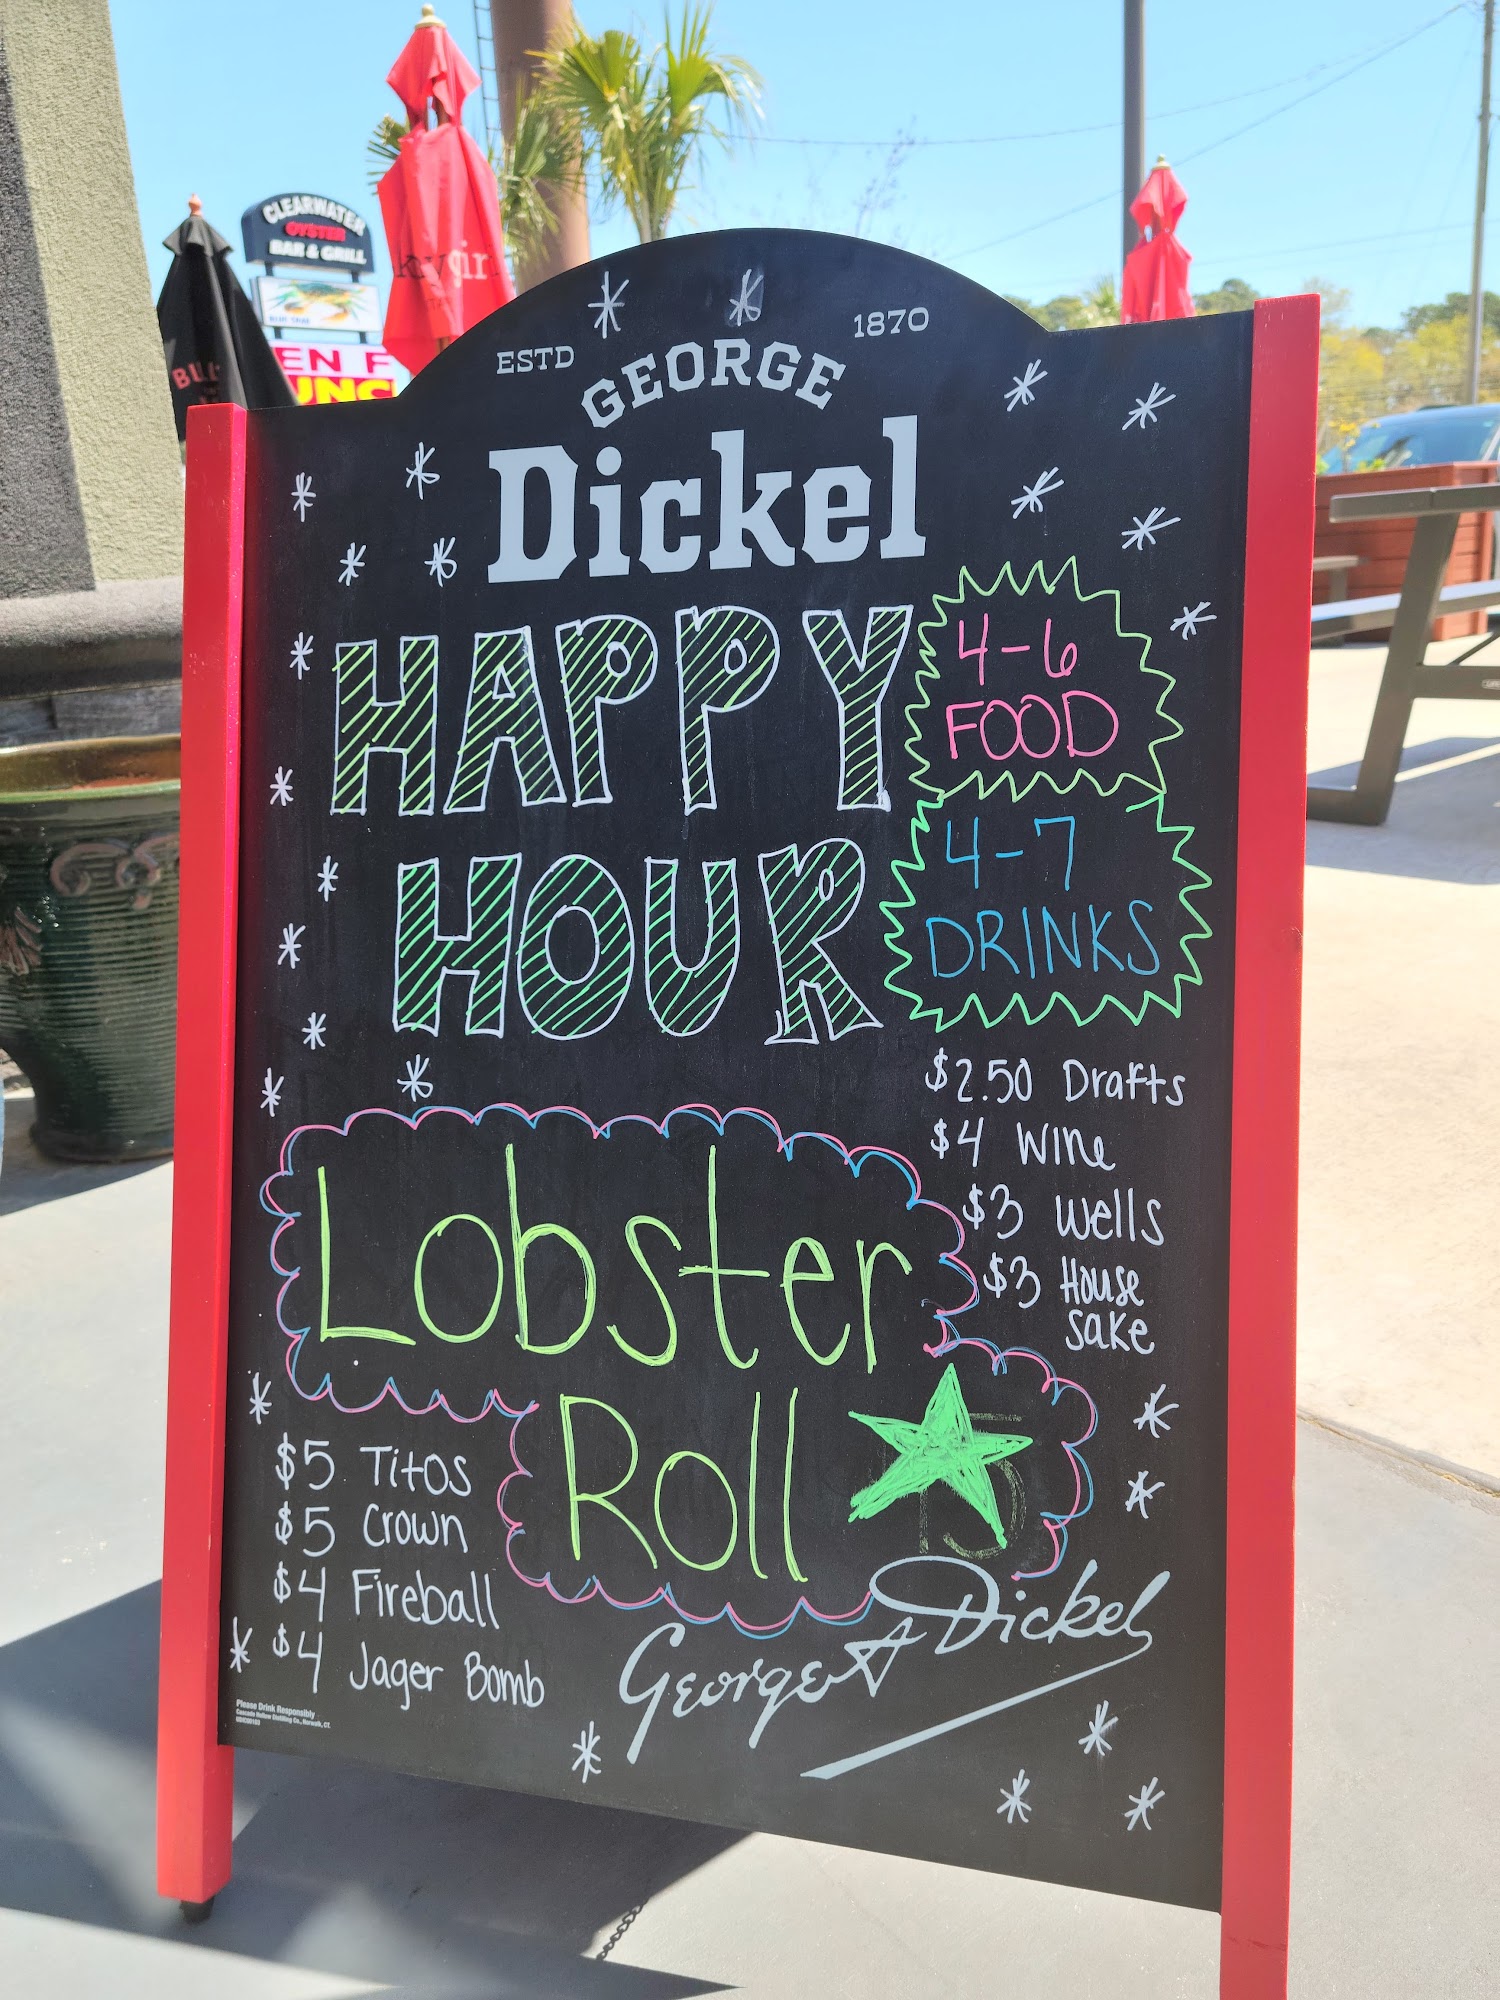 CLEARWATER
OYSTER
BAR & GRILL
EN F
UNC
ESTD
1870
GEORGE
Dickel
HAPPY
HOUR
4-6
FOOD
4-7
DRINKS
$2.50 Drafts
$4 Wine
$3 Wells
$3 House
Sake
Lobster
Roll
$5 Titos
$5 Crown
$4 Fireball
$4 Jager Bomb
George A Dickel
Please Drink Responsibly
Cascade Hollow Distilling Co., Norwalk, CT.